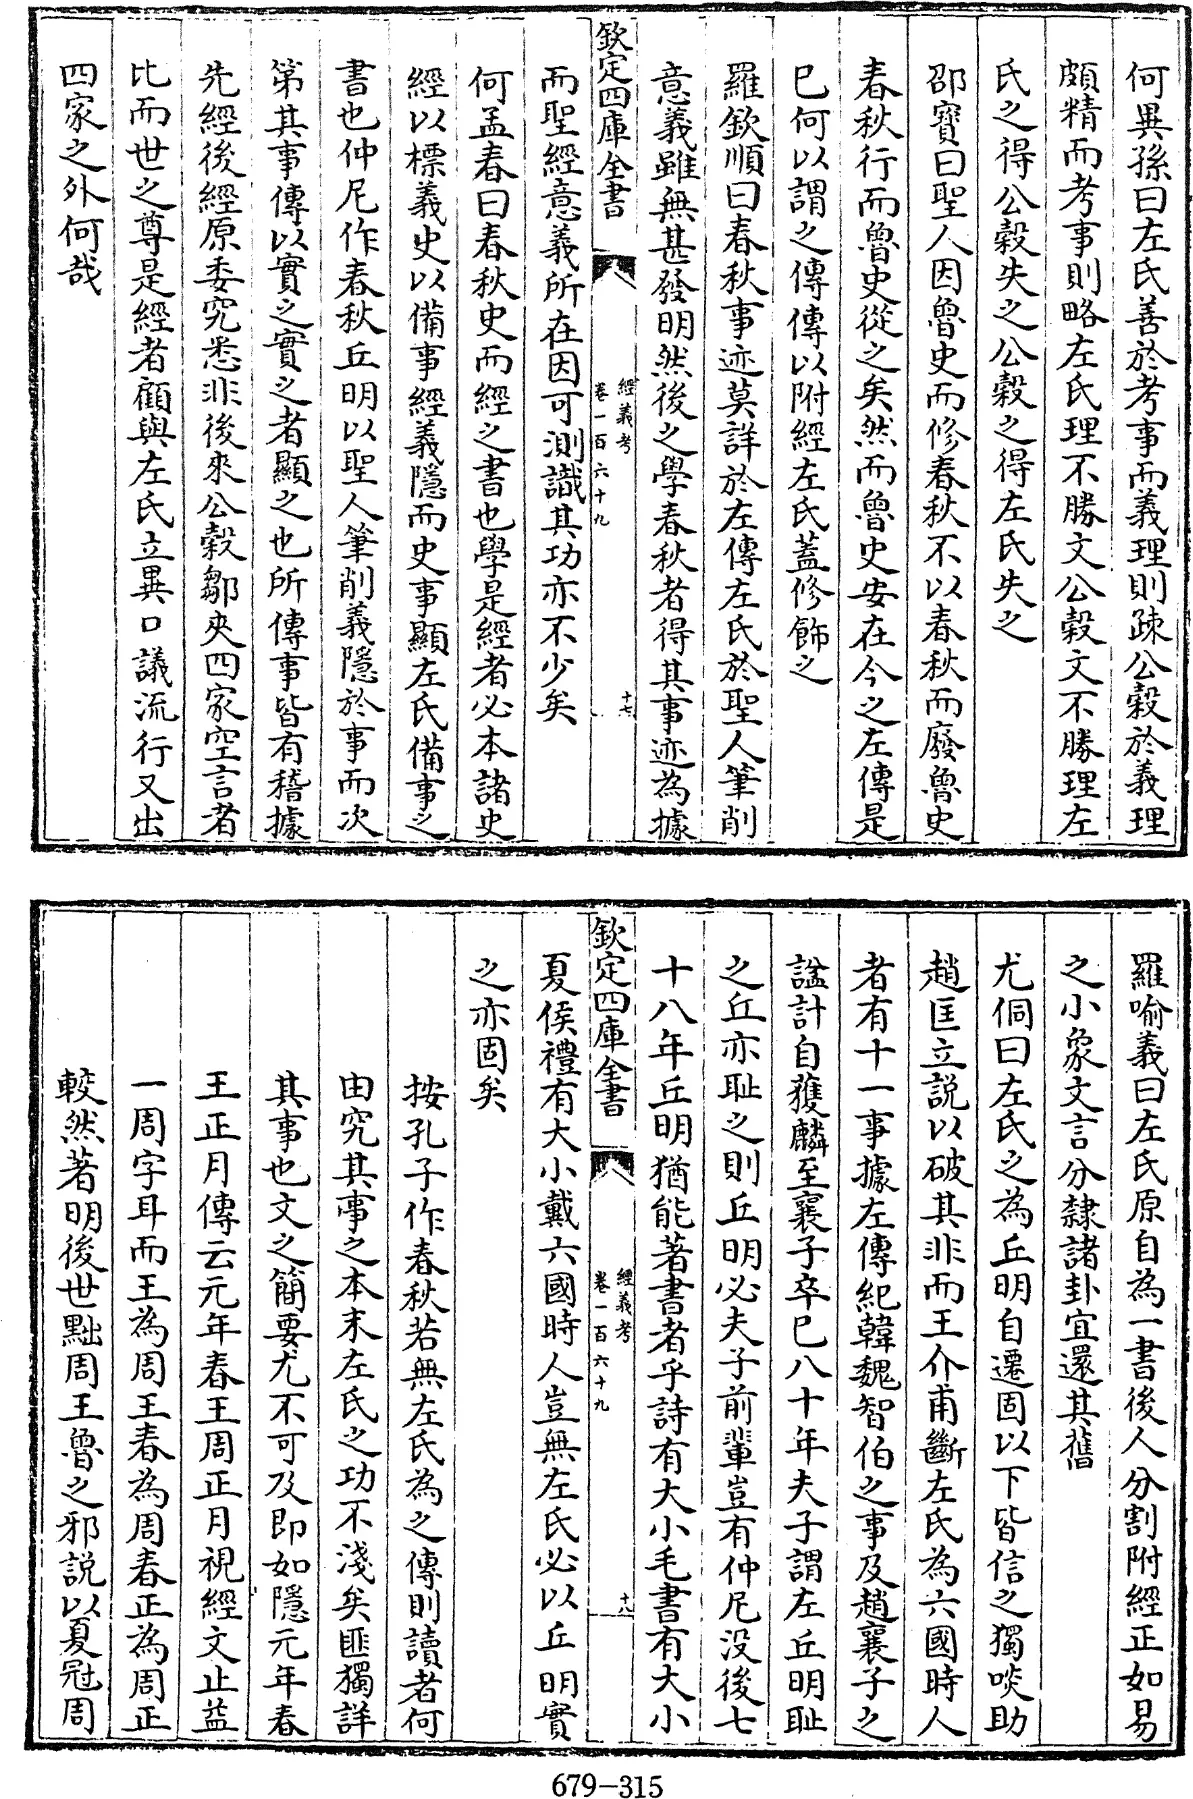 何異孫曰左氏善於考事而義理則疎公穀於義理
頗精而考事則略左氏理不勝文公穀文不勝理左
氏之得公穀失之公穀之得左氏失之
邵寳曰聖人因魯史而修春秋不以春秋而廢魯史
春秋行而魯史從之矣然而魯史安在今之左傳是
已何以謂之傳傳以附經左氏蓋修飾之
羅欽順曰春秋事迹莫詳於左傳左氏於聖人筆削
意義雖無甚發明然後之學春秋者得其事迹為據
欽定四庫全書
經義考
卷一百六十九
十七
而聖經意義所在因可測識其功亦不少矣
何孟春曰春秋史而經之書也學是經者必本諸史
經以標義史以備事經義隱而史事顯左氏備事之
書也仲尼作春秋丘明以聖人筆削義隱於事而次
第其事傳以實之實之者顯之也所傳事皆有稽據
先經後經原委究悉非後來公穀鄒夾四家空言者
比而世之尊是經者顧與左氏立異口議流行又出
四家之外何哉
羅喻義曰左氏原自為一書後人分割附經正如易
之小象文言分隸諸卦宜還其舊
尤侗曰左氏之為丘明自遷固以下皆信之獨啖助
趙匡立説以破其非而王介甫斷左氏為六國時人
者有十一事據左傳紀韓魏智伯之事及趙襄子之
諡計自獲麟至襄子卒已八十年夫子謂左丘明恥
之丘亦恥之則丘明必夫子前輩豈有仲尼没後七
十八年丘明猶能著書者乎詩有大小毛書有大小
欽定四庫全書
經義考
卷一百六十九
十八
夏侯禮有大小戴六國時人豈無左氏必以丘明實
之亦固矣
按孔子作春秋若無左氏為之傳則讀者何
由究其事之本末左氏之功不淺矣匪獨詳
其事也文之簡要尤不可及即如隱元年春
王正月傳云元年春王周正月視經文止益
一周字耳而王為周王春為周春正為周正
較然著明後世黜周王魯之邪説以夏冠周
679-315